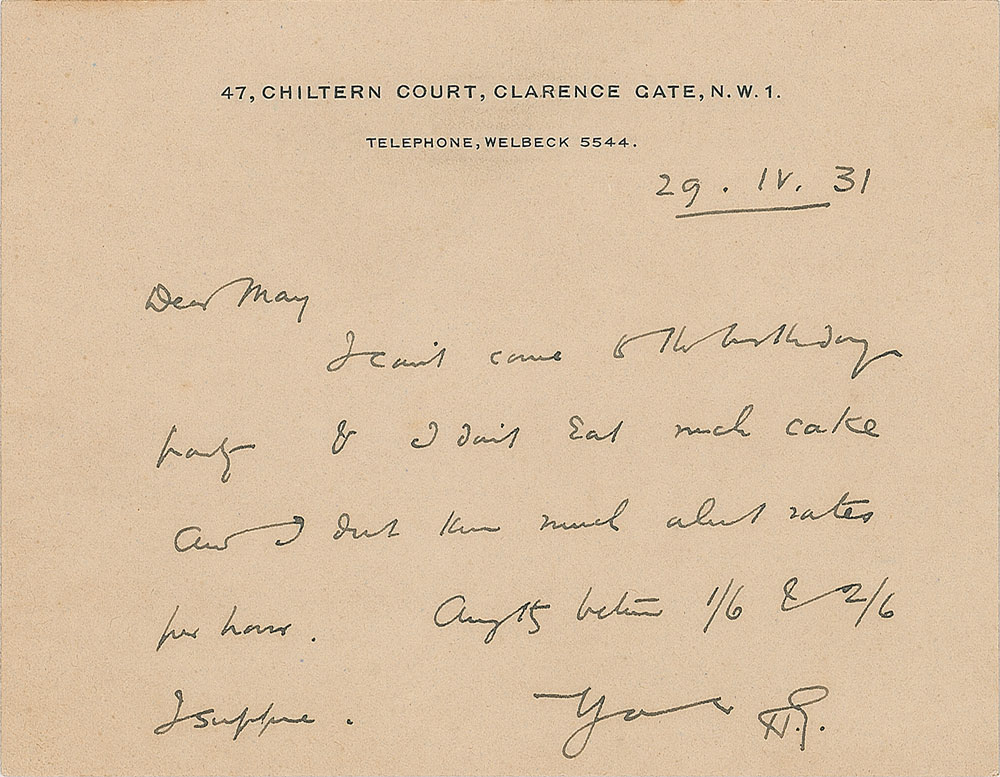 47, CHILTERN COURT, CLARENCE GATE, N.W.1.
TELEPHONE, WELBECK 5544.
29. IV. 31
Dear May
I can't come to the birthday
party & I don't eat much cake
and I don't know much about rates
per hour. Anything between 1/6 & 2/6
I suppose. Yours H.G.